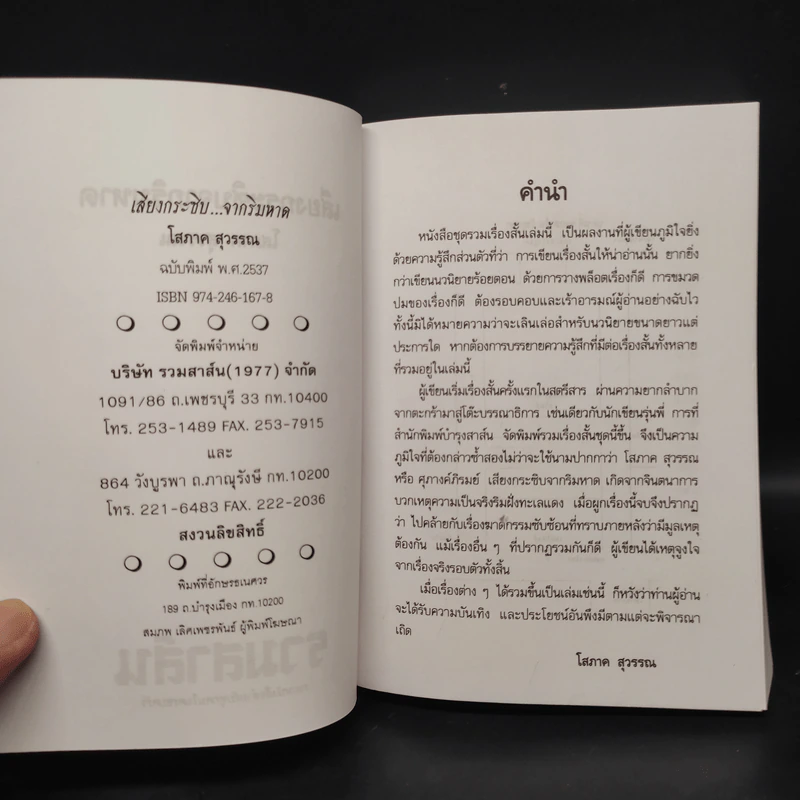 เสียงกระซิบ...จากริมหาด
โสภาค สุวรรณ
ฉบับพิมพ์ พ.ศ.2537
ISBN 974-246-167-8
จัดพิมพ์จำหน่าย
บริษัท รวมสาส์น(1977) จำกัด
1091/86 ถ.เพชรบุรี 33 กท.10400
โทร. 253-1489 FAX. 253-7915
และ
864 วังบูรพา ถ.ภาณุรังษี กท.10200
โทร. 221-6483 FAX. 222-2036
สงวนลิขสิทธิ์
พิมพ์ที่อักษรอเนศวร
189 ถ.บำรุงเมือง กท.10200
สมภพ เลิศเพชรพันธ์ ผู้พิมพ์โฆษณา
คำนำ
หนังสือชุดรวมเรื่องสั้นเล่มนี้ เป็นผลงานที่ผู้เขียนภูมิใจยิ่ง
ด้วยความรู้สึกส่วนตัวที่ว่า การเขียนเรื่องสั้นให้น่าอ่านนั้น ยากยิ่ง
กว่าเขียนนวนิยายร้อยตอน ด้วยการวางพล็อตเรื่องก็ดี การขมวด
ปมของเรื่องก็ดี ต้องรอบคอบและเร้าอารมณ์ผู้อ่านอย่างฉับไว
ทั้งนี้มิได้หมายความว่าจะเลินเล่อสำหรับนวนิยายขนาดยาวแต่
ประการใด หากต้องการบรรยายความรู้สึกที่มีต่อเรื่องสั้นทั้งหลาย
ที่รวมอยู่ในเล่มนี้
ผู้เขียนเริ่มเรื่องสั้นครั้งแรกในสตรีสาร ผ่านความยากลำบาก
จากตะกร้ามาสู่โต๊ะบรรณาธิการ เช่นเดียวกับนักเขียนรุ่นพี่ การที่
สำนักพิมพ์บำรุงสาส์น จัดพิมพ์รวมเรื่องสั้นชุดนี้ขึ้น จึงเป็นความ
ภูมิใจที่ต้องกล่าวซ้ำสองไม่ว่าจะใช้นามปากกาว่า โสภาค สุวรรณ
หรือ ศุภางค์ภิรมย์ เสียงกระซิบจากริมหาด เกิดจากจินตนาการ
บวกเหตุความเป็นจริงริมฝั่งทะเลแดง เมื่อผูกเรื่องนี้จบจึงปรากฏ
ว่า ไปคล้ายกับเรื่องฆาตกรรมซับซ้อนที่ทราบภายหลังว่ามีมูลเหตุ
ต้องกัน แม้เรื่องอื่น ๆ ที่ปรากฏรวมกันก็ดี ผู้เขียนได้เหตุจูงใจ
จากเรื่องจริงรอบตัวทั้งสิ้น
เมื่อเรื่องต่าง ๆ ได้รวมขึ้นเป็นเล่มเช่นนี้ ก็หวังว่าท่านผู้อ่าน
จะได้รับความบันเทิง และประโยชน์อันพึงมีตามแต่จะพิจารณา
เถิด
โสภาค สุวรรณ